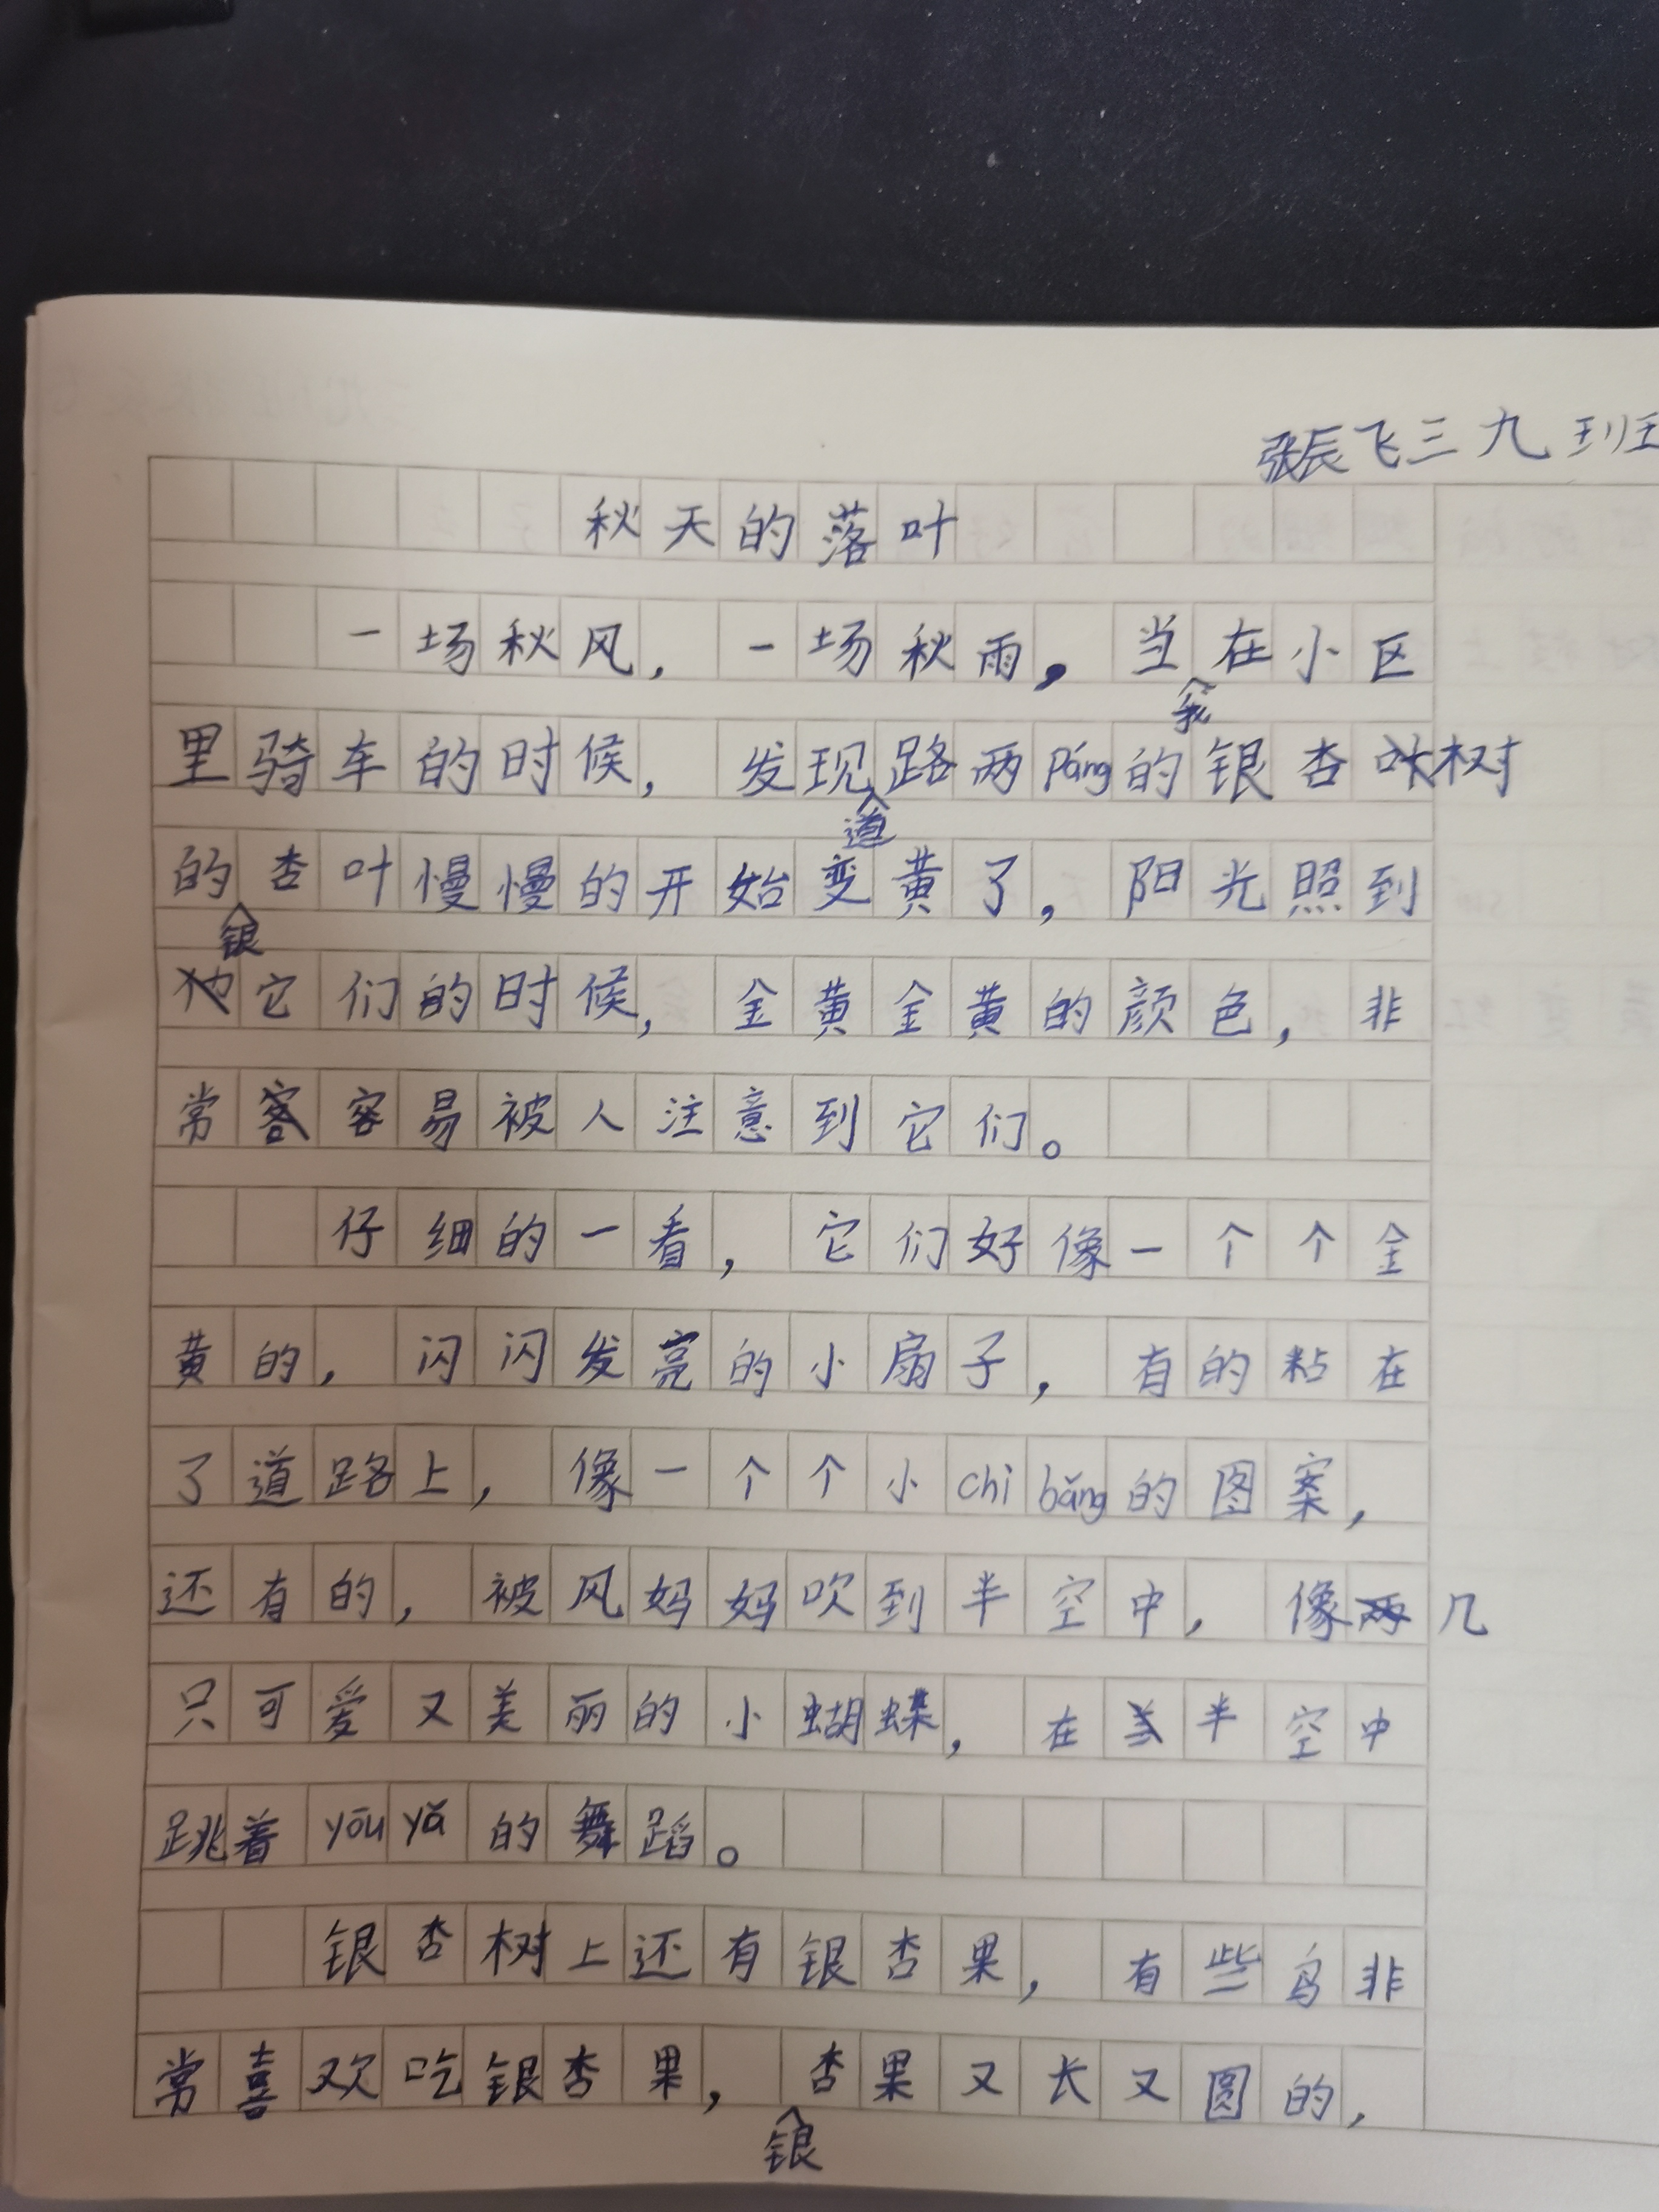 张辰飞三九班
秋天的落叶
一场秋风，一场秋雨，当我在小区
里骑车的时候，发现道路两páng的银杏树
的银杏叶慢慢的开始变黄了，阳光照到
它们的时候，金黄金黄的颜色，非
常容易被人注意到它们。
仔细的一看，它们好像一个个金
黄的，闪闪发亮的小扇子，有的粘在
了道路上，像一个个小chìbǎng的图案，
还有的，被风妈妈吹到半空中，像几
只可爱又美丽的小蝴蝶，在半空中
跳着yōuyǎ的舞蹈。
银杏树上还有银杏果，有些鸟非
常喜欢吃银杏果，银杏果又长又圆的，